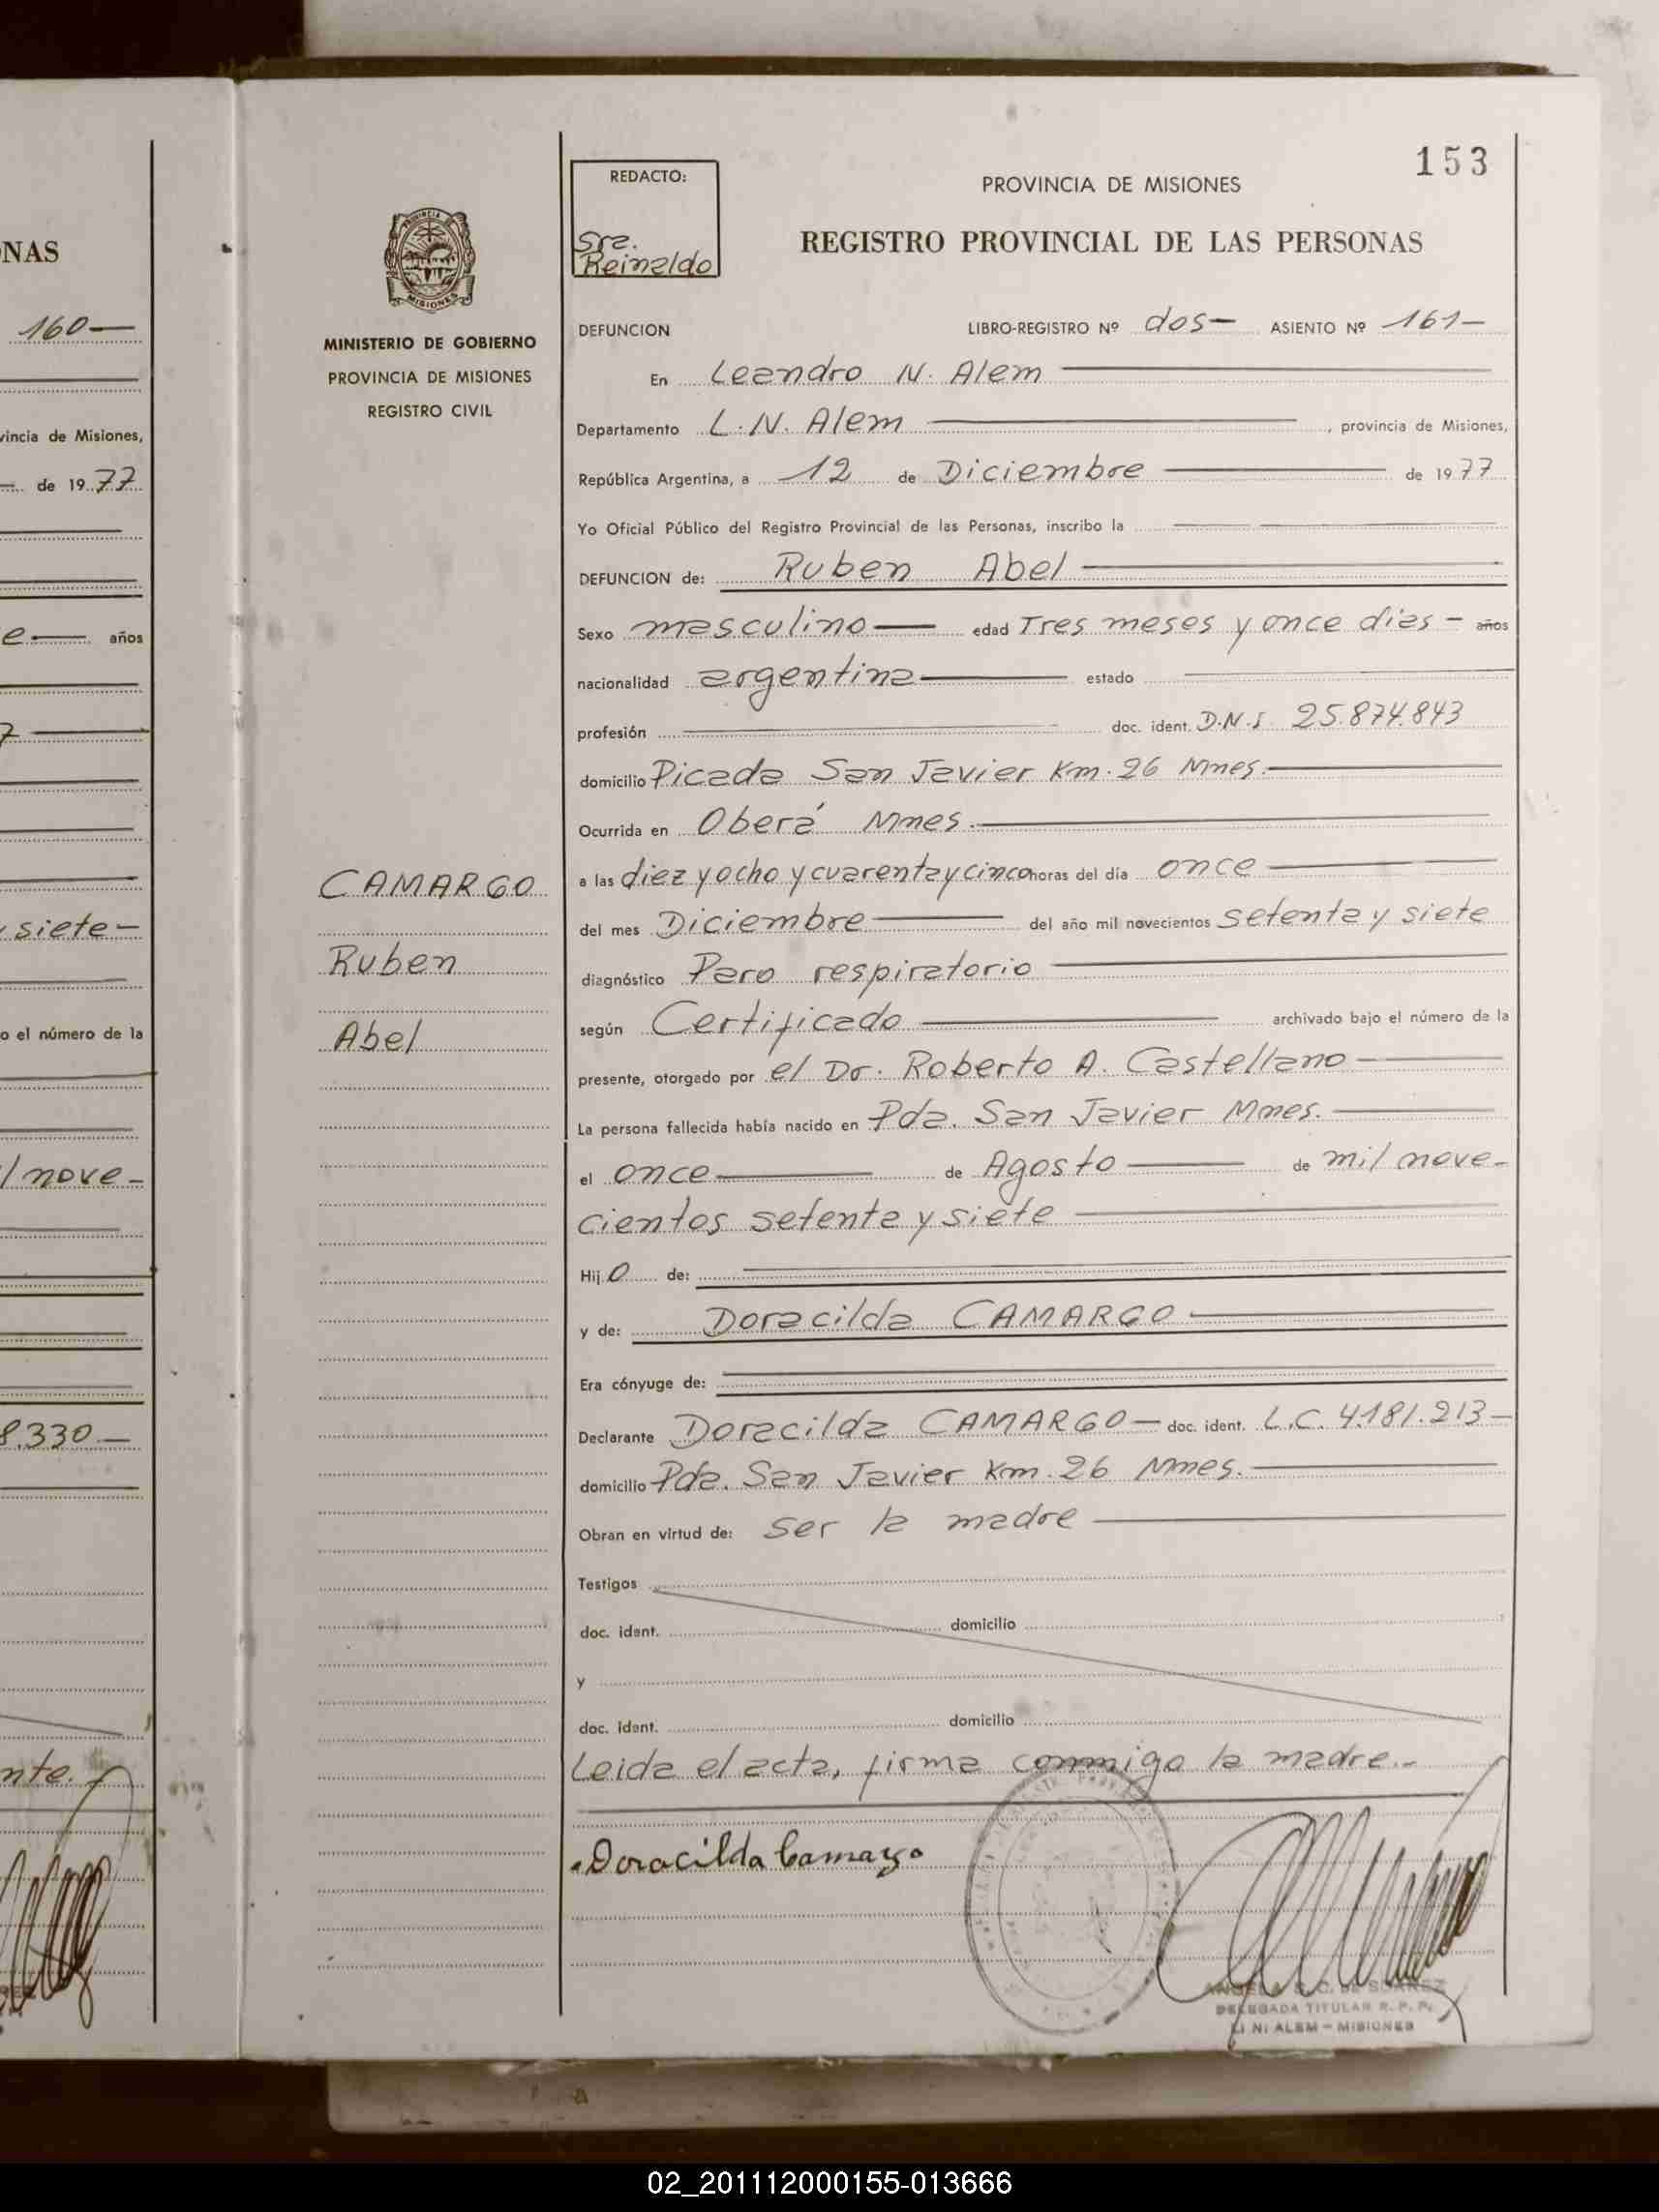 NAS
160
vincia de Misiones,
de 1977
e años
7
siete
o el número de la
l nove-
8.330
nte.
PROVINCIA DE
MISIONES
MINISTERIO DE GOBIERNO
PROVINCIA DE MISIONES
REGISTRO CIVIL
CAMARGO
Ruben
Abel
153
REDACTO:
Sra.
Reinaldo
PROVINCIA DE MISIONES
REGISTRO PROVINCIAL DE LAS PERSONAS
DEFUNCION LIBRO-REGISTRO Nº dos— ASIENTO Nº 161—
En Leandro N. Alem
Departamento L. N. Alem , provincia de Misiones,
República Argentina, a 12 de Diciembre de 1977
Yo Oficial Público del Registro Provincial de las Personas, inscribo la
DEFUNCION de: Ruben Abel
Sexo masculino edad Tres meses y once dias – años
nacionalidad argentina estado
profesión doc. ident. D.N.I. 25.874.843
domicilio Picada San Javier Km. 26 Mnes.
Ocurrida en Oberá Mnes.
a las diez y ocho y cuarenta y cinco horas del día once
del mes Diciembre del año mil novecientos setenta y siete
diagnóstico Paro respiratorio
según Certificado archivado bajo el número de la
presente, otorgado por el Dr. Roberto A. Castellano
La persona fallecida había nacido en Pda. San Javier Mnes.
el once de Agosto de mil nove-
cientos setenta y siete
Hijo de:
y de: Doracilda CAMARGO
Era cónyuge de:
Declarante Doracilda CAMARGO— doc. ident. L.C. 4.181.213—
domicilio Pda. San Javier Km. 26 Mnes.
Obran en virtud de: ser la madre
Testigos
doc. ident. domicilio
y
doc. ident. domicilio
Leida el acta, firma conmigo la madre.-
Doracilda Camargo
ANGELA S. C. DE SUAREZ
DELEGADA TITULAR R. P. P.
L. N. ALEM – MISIONES
02_201112000155-013666